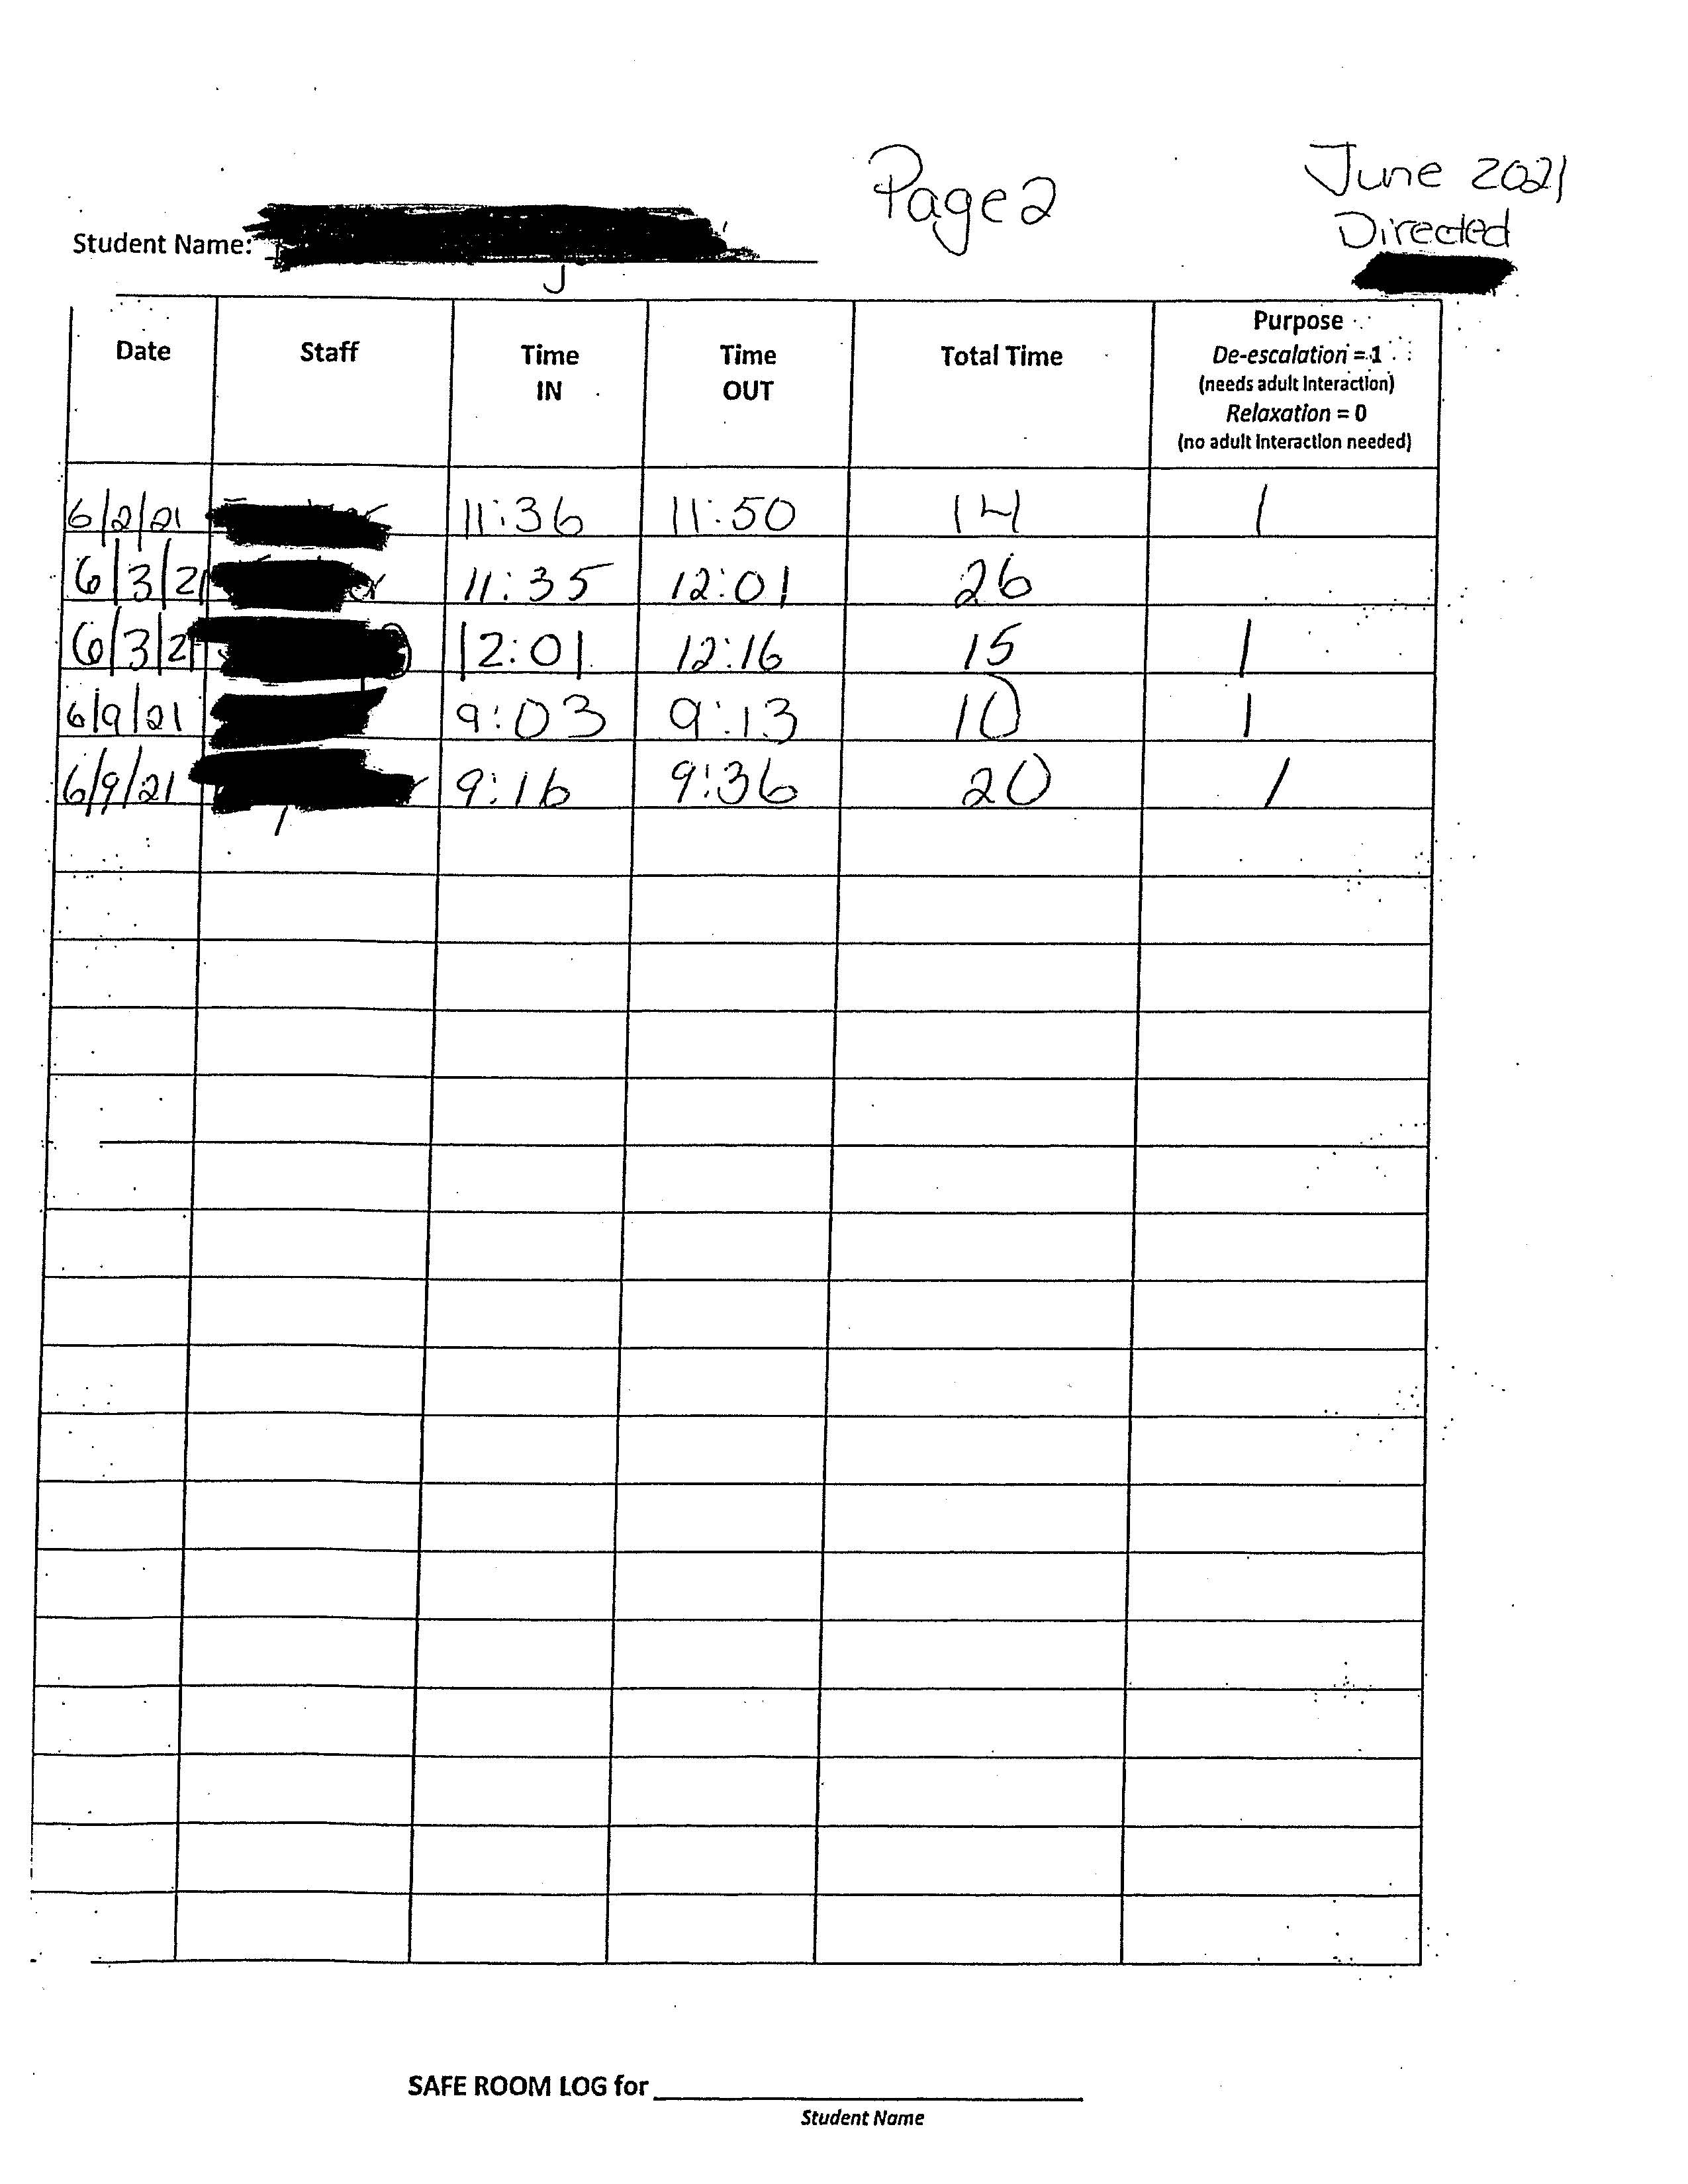 Page 2
June 2021
Directed
Student Name:
Date Staff Time IN Time OUT Total Time Purpose
De-escalation = 1
(needs adult interaction)
Relaxation = 0
(no adult interaction needed)
6/2/21 11:36 11:50 14 1
6/3/21 11:35 12:01 26
6/3/21 12:01 12:16 15 1
6/9/21 9:03 9:13 10 1
6/9/21 9:16 9:36 20 1
SAFE ROOM LOG for
Student Name